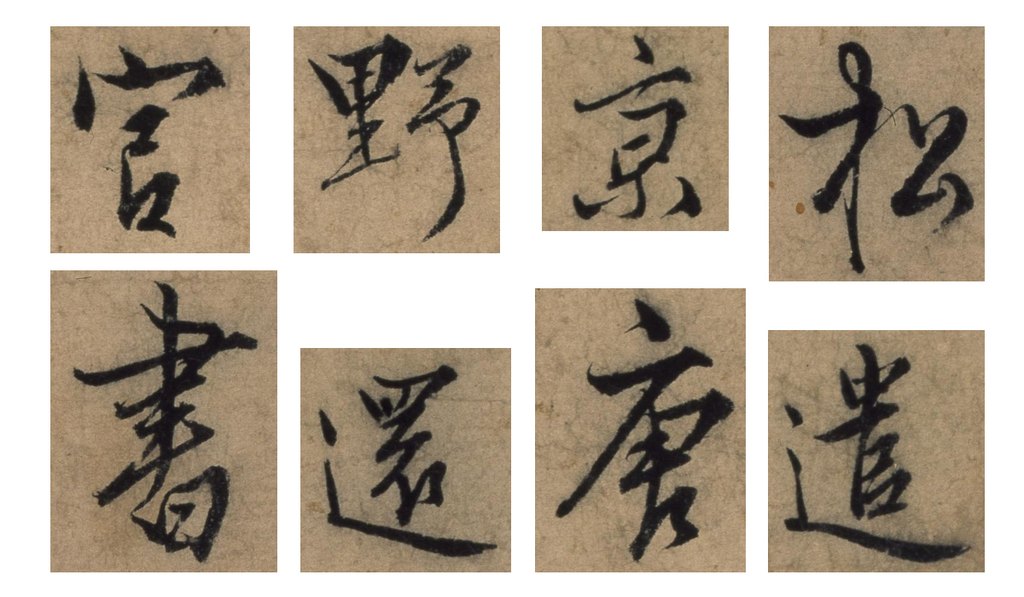 官野京松
書還唐遣